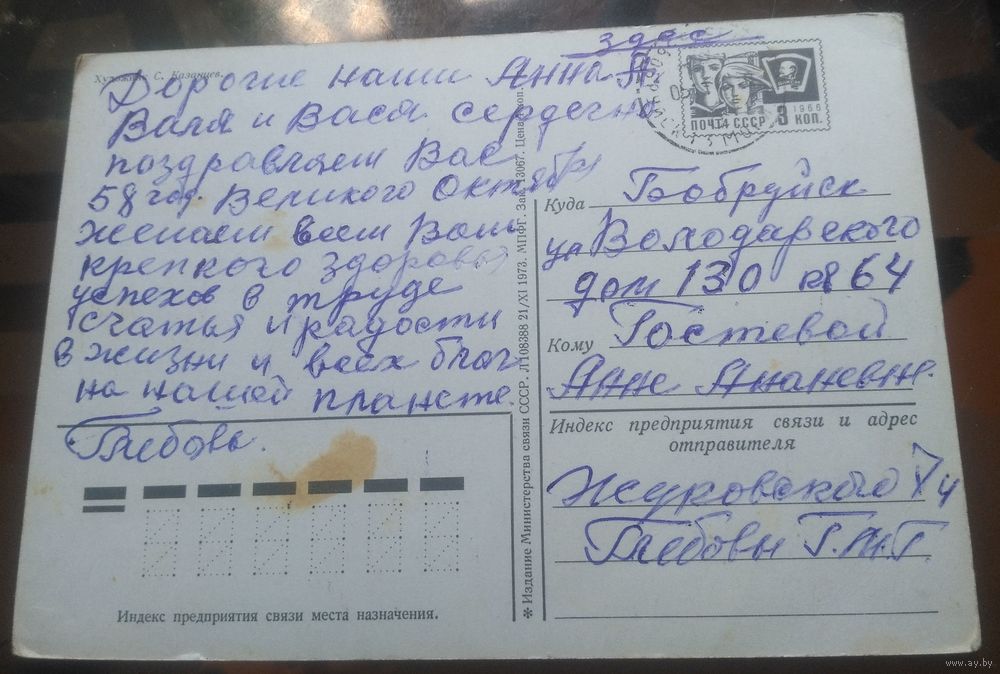 здес
Художник С. Казанцев.
Дорогие наши Анна А
Валя и Вася сердечно
поздравляем Вас
58 год. Великого Октября
желаем всем Вам
крепкого здоровья
успехов в труде
счастья и радости
в жизни и всех благ
на нашей планете.
Глебовы.
Индекс предприятия связи места назначения.
✱ Издание Министерства связи СССР. Л108388 21/XI 1973. МПФГ. Зак. 13067. Цена коп.
ПОЧТА СССР 3 КОП.
1966
Куда Бобруйск
ул Володарского
дом 130 кв 64
Кому Гостевой
Анне Ананевне.
Индекс предприятия связи и адрес
отправителя
Жуковского 7
Глебовы
www.ay.by